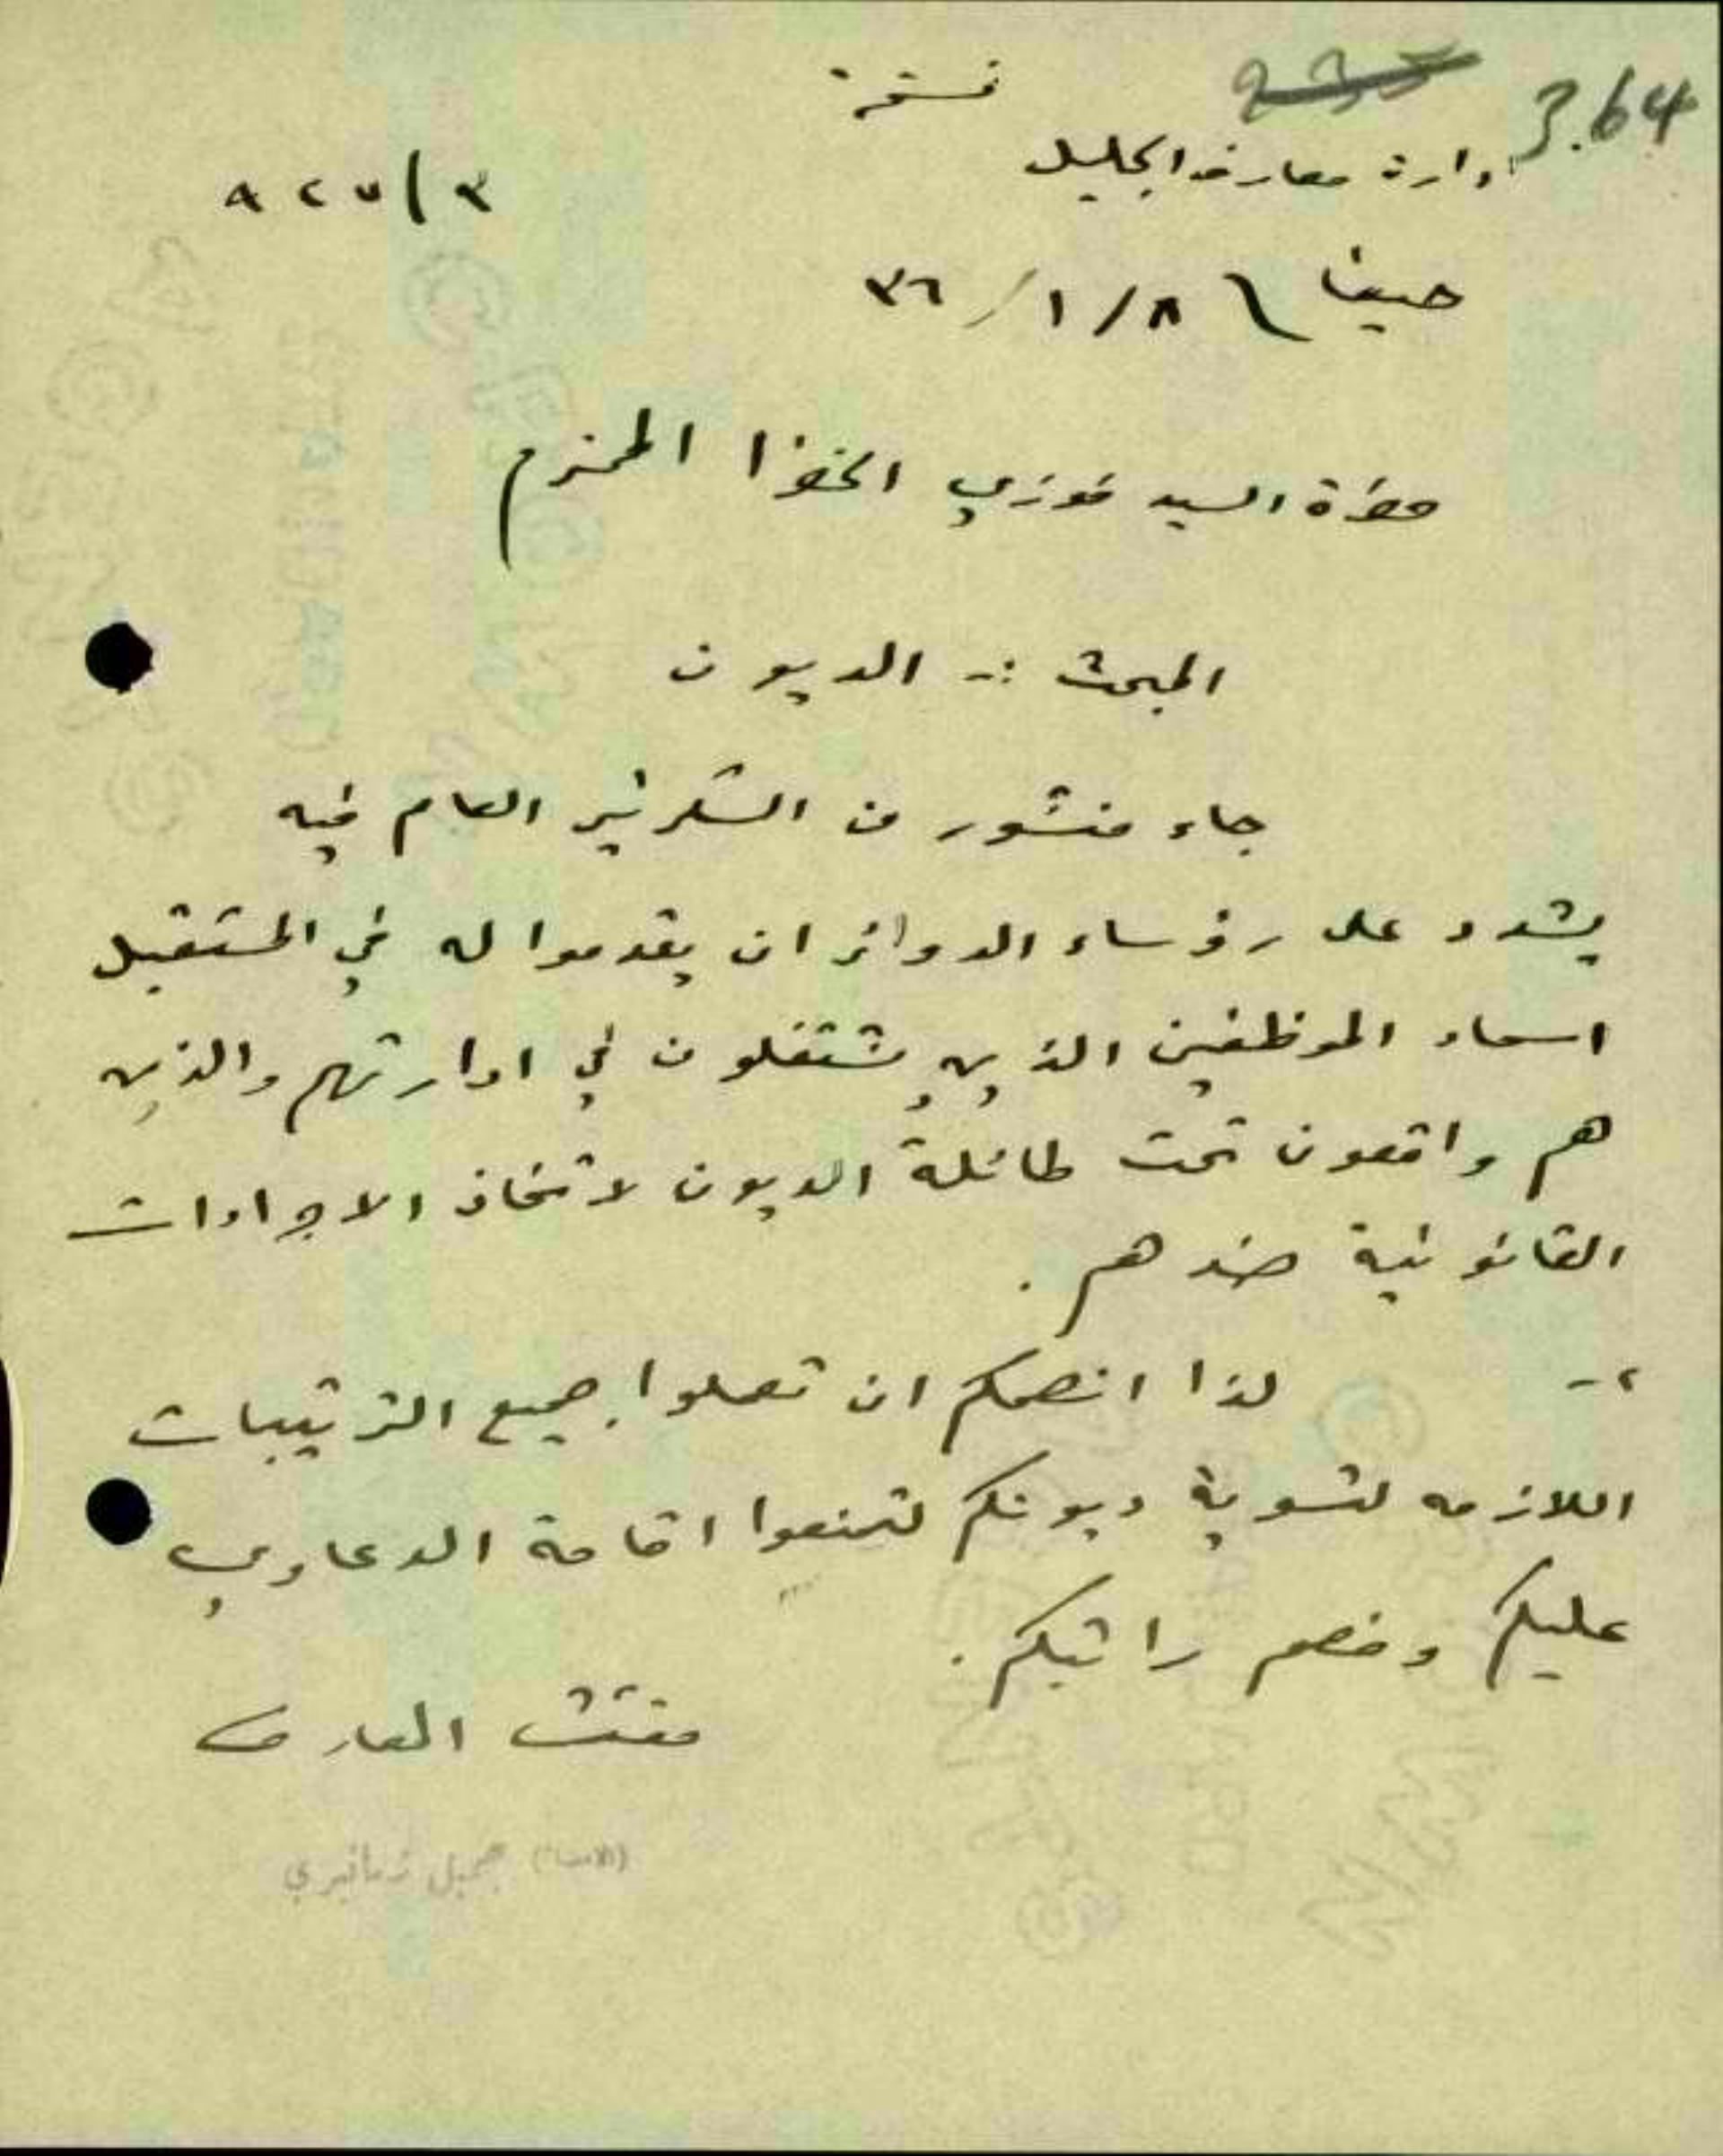 نسخة
3.64
ادارة معارف الجليل
٩٢٧/٣
حيفا ٣٦/١/٨
حضرة السيد فوزي الخضرا المحترم
المبحث :- الديون
جاء منشور من السكرتير العام فيه
يشدد على رؤساء الدوائر ان يقدموا له في المستقبل
اسماء الموظفين الذين يشتغلون في ادارتهم والذين
هم واقعون تحت طائلة الديون لاتخاذ الاجراءات
القانونية ضدهم .
٢-
لذا انصحكم ان تعملوا جميع الترتيبات
اللازمه لتسوية ديونكم لتمنعوا اقامة الدعاوي
عليكم وخصم راتبكم .
مفتش المعارف
(الامضاء) جميل